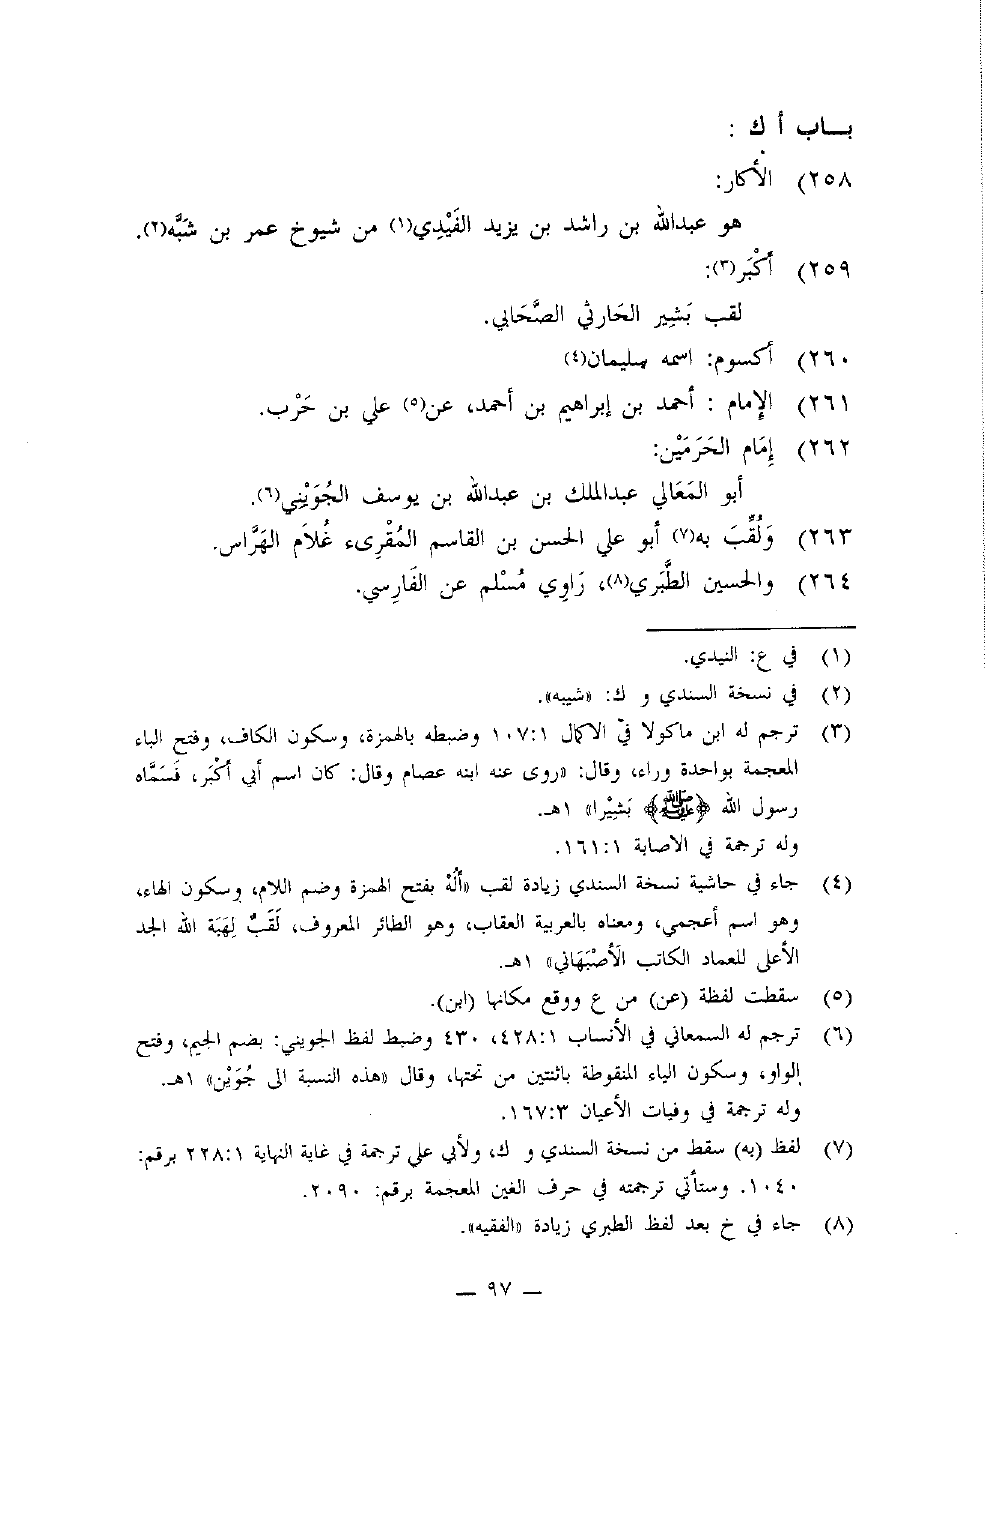 بـــاب أ ك :
٢٥٨) الأكار:
هو عبدالله بن راشد بن يزيد الفَيْدِي(١) من شيوخ عمر بن شَبَّه(٢).
٢٥٩) أَكْبَر(٣):
لقب بَشِير الحَارثي الصَّحَابي.
٢٦٠) أكسوم: اسمه سليمان(٤)
٢٦١) الإمام : أحمد بن إبراهيم بن أحمد، عن(٥) علي بن حَرْب.
٢٦٢) إمَام الحَرَمَيْن:
أبو المَعَالي عبدالملك بن عبدالله بن يوسف الجُوَيْني(٦).
٢٦٣) وَلُقِّبَ به(٧) أبو علي الحسن بن القاسم المُقْرِىء غُلاَم الهَرَّاس.
٢٦٤) والحسين الطَّبَري(٨)، رَاوِي مُسْلم عن الفَارِسي.
(١) في ع: النيدي.
(٢) في نسخة السندي و ك: «شيبه».
(٣) ترجم له ابن ماكولا في الاكمال ١٠٧:١ وضبطه بالهمزة، وسكون الكاف، وفتح الباء
المعجمة بواحدة وراء، وقال: «روى عنه ابنه عصام وقال: كان اسم أبي أَكْبَر، فَسَمَّاه
رسول الله ﴿ﷺ﴾ بَشِيْرا» ١هـ.
وله ترجمة في الاصابة ١٦١:١.
(٤) جاء في حاشية نسخة السندي زيادة لقب «أَلُهْ بفتح الهمزة وضم اللام، وسكون الهاء،
وهو اسم أعجمي، ومعناه بالعربية العقاب، وهو الطائر المعروف، لَقَبٌ لِهَبَة الله الجد
الأعلى للعماد الكاتب الأَصْبَهَاني» ١هـ.
(٥) سقطت لفظة (عن) من ع ووقع مكانها (ابن).
(٦) ترجم له السمعاني في الأنساب ٤٢٨:١، ٤٣٠ وضبط لفظ الجويني: بضم الجيم، وفتح
الواو، وسكون الياء المنقوطة باثنتين من تحتها، وقال «هذه النسبة الى جُوَيْن» ١هـ.
وله ترجمة في وفيات الأعيان ١٦٧:٣.
(٧) لفظ (به) سقط من نسخة السندي و ك، ولأبي علي ترجمة في غاية النهاية ٢٢٨:١ برقم:
١٠٤٠. وستأتي ترجمته في حرف الغين المعجمة برقم: ٢٠٩٠.
(٨) جاء في خ بعد لفظ الطبري زيادة «الفقيه».
— ٩٧ —